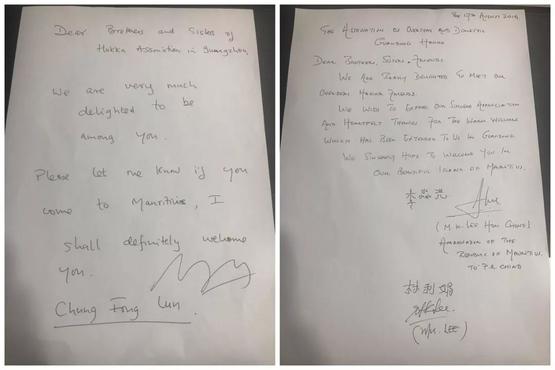 Dear Brothers and Sisters of
Hakka Association in Guangzhou,
We are very much
delighted to be
among you.
Please let me know if you
come to Mauritius, I
shall definitely welcome
you.
Chung Fong Lun.
The 17th August 2019
The Association of Overseas and Domestic
Guandong Hakka
Dear Brothers, Sisters, Friends.
We are really delighted to meet our
overseas Hakka friends.
We wish to express our sincere appreciation
and heartfelt thanks for the warm welcome
which has been extended to us in Guandong
We sincerely hope to welcome you in
our beautiful island of Mauritius.
李
(M.K. Lee Hon Chong)
Ambassador of the
Republic of Mauritius
to P.R. China
林利娟
(Mrs. Lee)